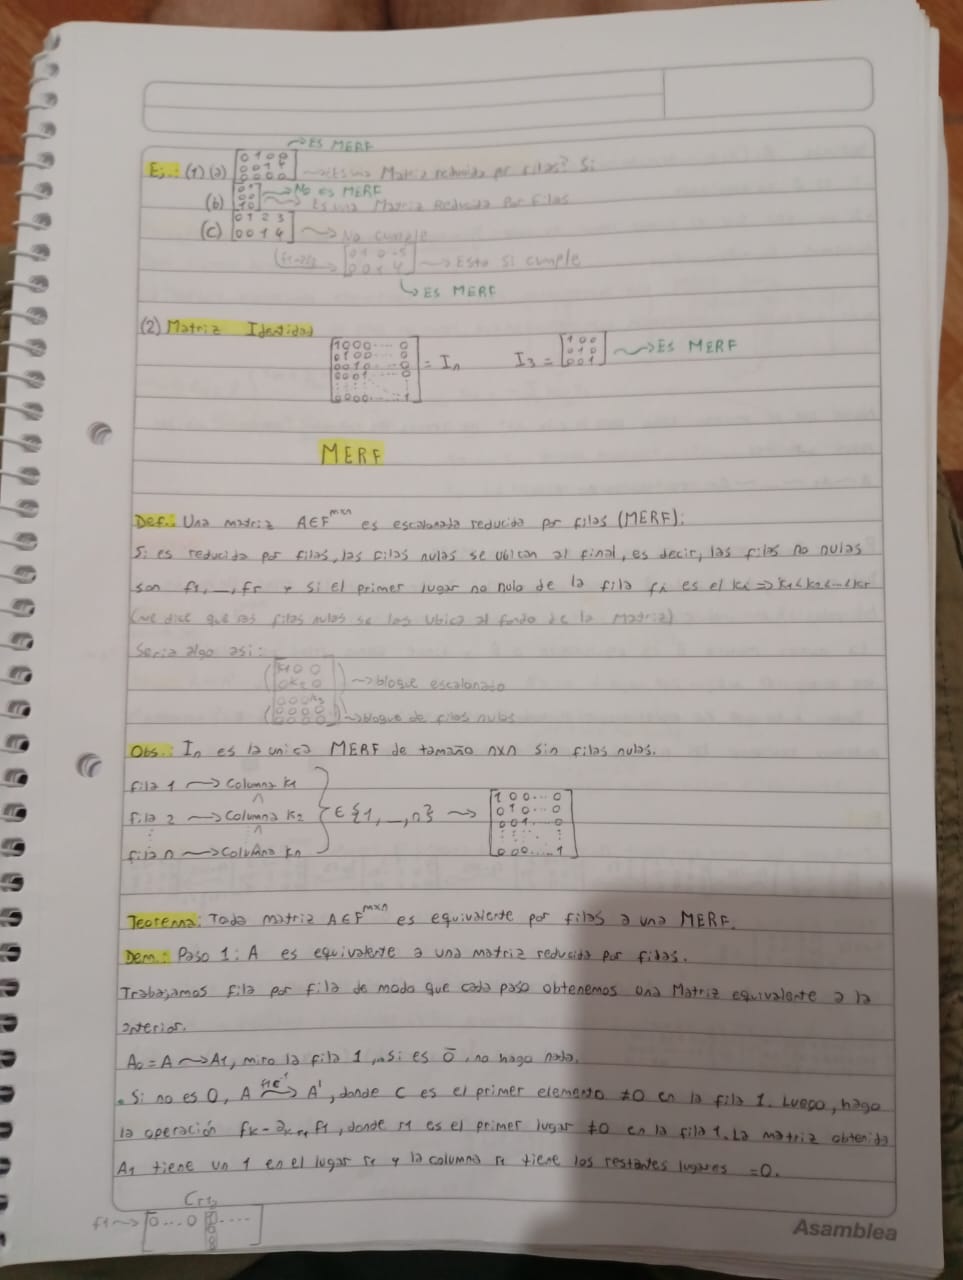 →ES MERF
Ej.: (1)(a) [0 1 0 0 / 0 0 1 4 / 0 0 0 0] → ¿Es una Matriz reducida por filas? Si
→No es MERF
(b) → Es una Matriz Reducida Por Filas
(c) [0 1 2 3 / 0 0 1 4] → No cumple
[0 1 0 -5 / 0 0 1 4] → Esto si cumple
↳ES MERF
(2) Matriz Identidad
[1 0 0 0 ... 0 / 0 1 0 0 ... 0 / 0 0 1 0 ... 0 / 0 0 0 1 ... / 0 0 0 0 ... 1] = In I3 = [1 0 0 / 0 1 0 / 0 0 1] →ES MERF
MERF
Def.: Una matriz A∈F^mxn es escalonada reducida por filas (MERF):
Si es reducida por filas, las filas nulas se ubican al final, es decir, las filas no nulas
son f1, _, fr y si el primer lugar no nulo de la fila fi es el Ki => K1<K2<...<Kr
(me dice que las filas nulas se las ubica al fondo de la Matriz)
Seria algo asi:
→bloque escalonado
[0 0 0 0] →bloque de filas nulas
Obs.: In es la unica MERF de tamaño nxn sin filas nulas.
fila 1 → Columna K1
fila 2 → Columna K2 } ∈ {1, _, n} → [1 0 0 ... 0 / 0 1 0 ... 0 / 0 0 1 ... 0 / 0 0 0 ... 1]
fila n → Columna Kn
Teorema: Toda matriz A∈F^mxn es equivalente por filas a una MERF.
Dem.: Paso 1: A es equivalente a una matriz reducida por filas.
Trabajamos fila por fila de modo que cada paso obtenemos una Matriz equivalente a la
anterior.
A0 = A → A1, miro la fila 1, Si es 0̄, no hago nada.
. Si no es 0, A → A', donde C es el primer elemento ≠0 en la fila 1. Luego, hago
la operación fk - f1, donde r1 es el primer lugar ≠0 en la fila 1. La matriz obtenida
A1 tiene un 1 en el lugar r1 y la columna r1 tiene los restantes lugares =0.
Cr1
f1→ [0 ... 0
Asamblea